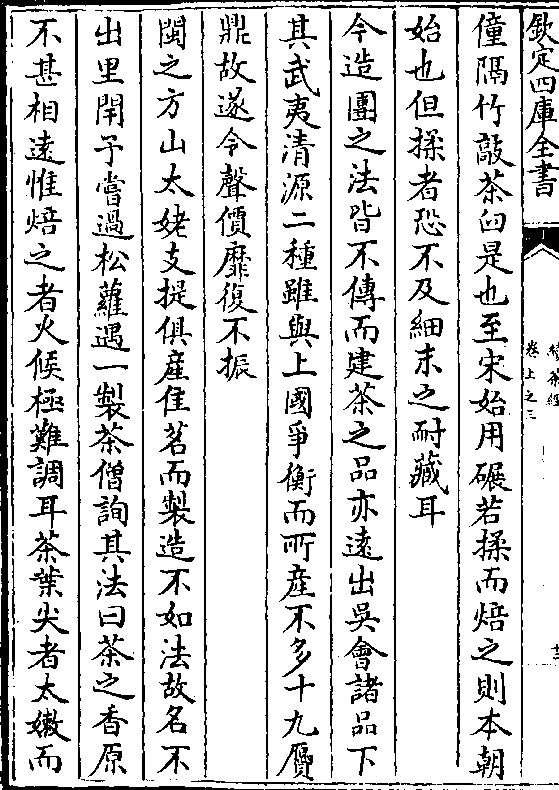 欽定四庫全書
續茶經
卷上之三
僮隔竹敲茶臼是也至宋始用碾若揉而焙之則本朝
始也但揉者恐不及細末之耐藏耳
今造團之法皆不傳而建茶之品亦遠出吳會諸品下
其武夷清源二種雖與上國爭衡而所產不多十九贗
鼎故遂令聲價靡復不振
閩之方山太姥支提俱產佳茗而製造不如法故名不
出里閈予嘗過松蘿遇一製茶僧詢其法曰茶之香原
不甚相遠惟焙之者火候極難調耳茶葉尖者太嫩而